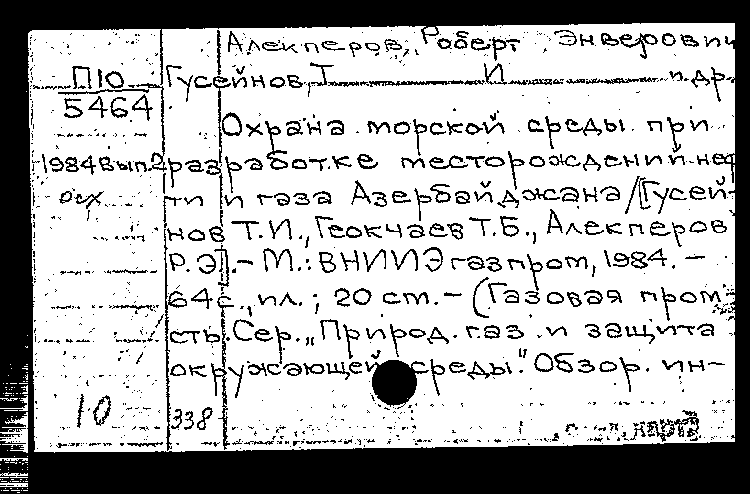 Алекперов, Роберт Энверович
П10 Гусейнов, Т И и др.
5464
Охрана морской среды при
1984 вып.2 разработке месторождений неф
осх ти и газа Азербайджана/[Гусей-
нов Т.И., Геокчаев Т.Б., Алекперов
Р.Э].- М.: ВНИИЭгазпром, 1984. -
64 с., ил.; 20 см. - (Газовая пром-
сть. Сер. „Природ. газ и защита
окружающей среды." Обзор. ин-
10 338
карта